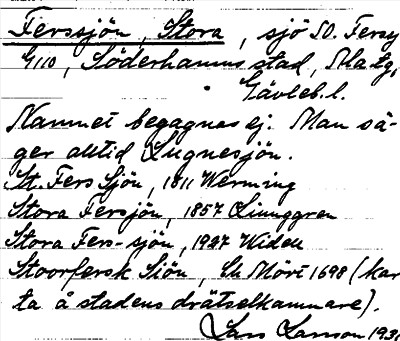 Ferssjön, Stora, sjö SO. Fersj
G110, Söderhamns stad, Ma tg,
Gävleb. l.
Namnet begagnas ej. Man sä-
ger alltid Lugnesjön.
St. Fers Sjön, 1811 Werming
Stora Fersjön, 1857 Ljunggren
Stora Fers-sjön, 1927 Widén
Stoorfersk Siön, Ch Mört 1698 (kar
ta å stadens drätselkammare).
Lars Larsson 193